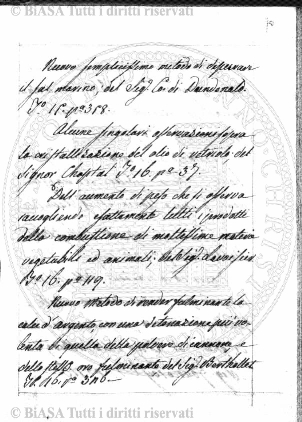 © BIASA Tutti i diritti riservati
Nuovo semplicissimo metodo di depurare
il sal marino, del Sig. Co: di Dundonald.
T.º 15. p.º 358.
Alcune singolari osservazione sopra
la cristallizazione del olio di vitriolo del
Signor Chaptal T.º 16. p.º 37.
Dell'aumento di peso che si osserva
raccogliendo esattamente tutti i prodotti
della combustione di moltissime materie
vegetabili ed animali; del Sig. Lavoisier
T.º 16. p.º 119.
Nuovo metodo di render fulminante la
calce d'argento, con una detonazione più vio
lenta di quella della polvere di cannone e
dello stesso oro fulminante del Sig. Berthollet
T.º 16. p.º 346.
© BIASA Tutti i diritti riservati